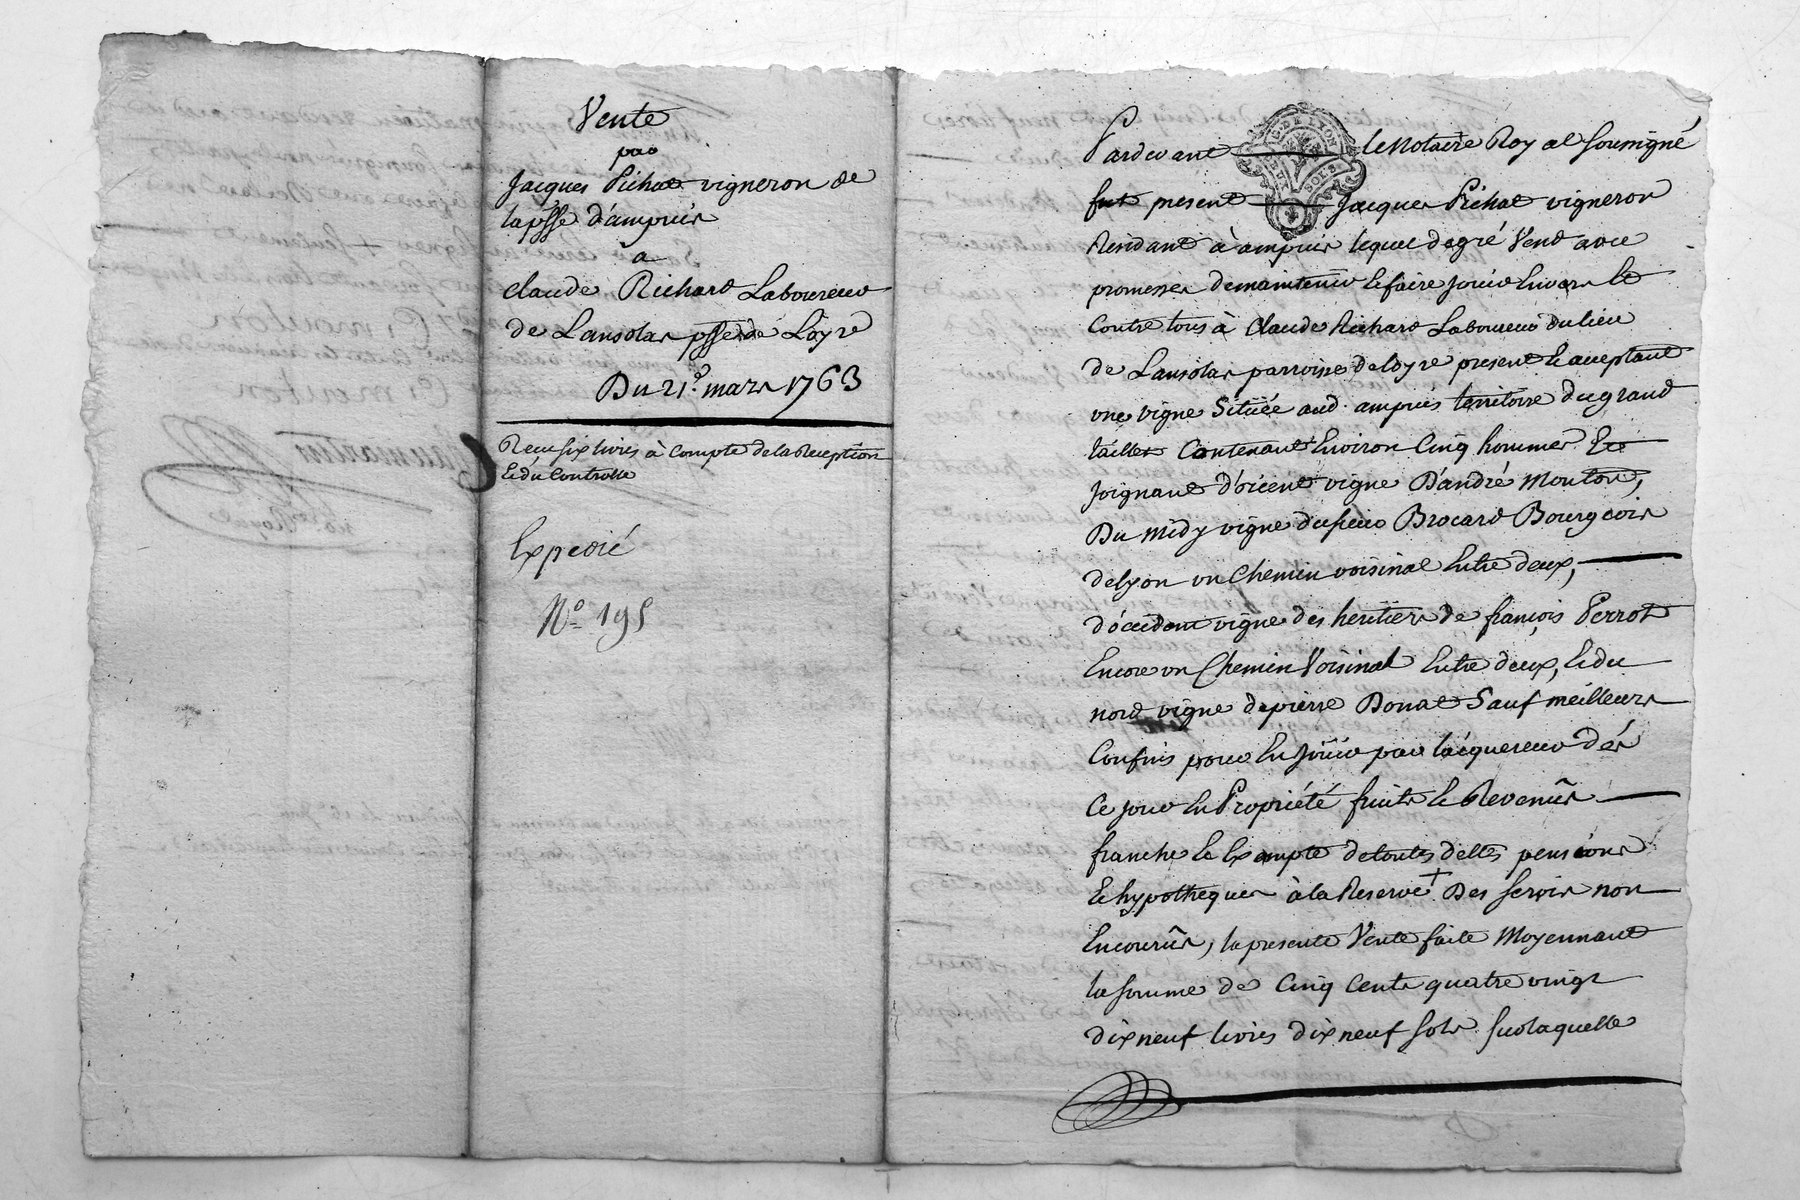 Vente
par
Jacques Pichat vigneron de
la psse d'ampuis
à
Claude Richard Laboureur
de Lansolas psse de Loyre
Du 21.e mars 1763
Receu six livres à Compte de la Reception
Et du Controlle
Expedié
No. 195
Pardevant le Notaire Royal Soussigné
G. DE LYON
SOLS
fut present Jacques Pichat vigneron
Residant à ampuis lequel de gré Vend avec
promesses de maintenir Et faire jouir Envers Et
Contre tous à Claude Richard Laboureur du lieu
de Lansolas parroisse de loyre present Et acceptant
une vigne Sitüée aud. ampuis territoire du grand
taillet Contenant Environ Cinq hommes Et
Joignant d'orient vigne D'andré Mouton,
Du midy vigne du sieur Brocard Bourgeois
de lyon un Chemin voisinal Entre deux,
d'occident vigne des heritiers de françois Perrot
Encore un Chemin Voisinal Entre deux, Et du
nord vigne de pierre Donat Sauf meilleurs
Confins pour En joüir par l'acquereur dés
Ce jour En Propriété fruits Et Revenûs
franche Et Exempte de toutes dettes pensions
Et hypotheques à la Reserve + Des servis non
Encourûs, la presente Vente faite Moyennant
la somme de Cinq Cents quatre vingt
dix neuf livres dix neuf sols sur laquelle